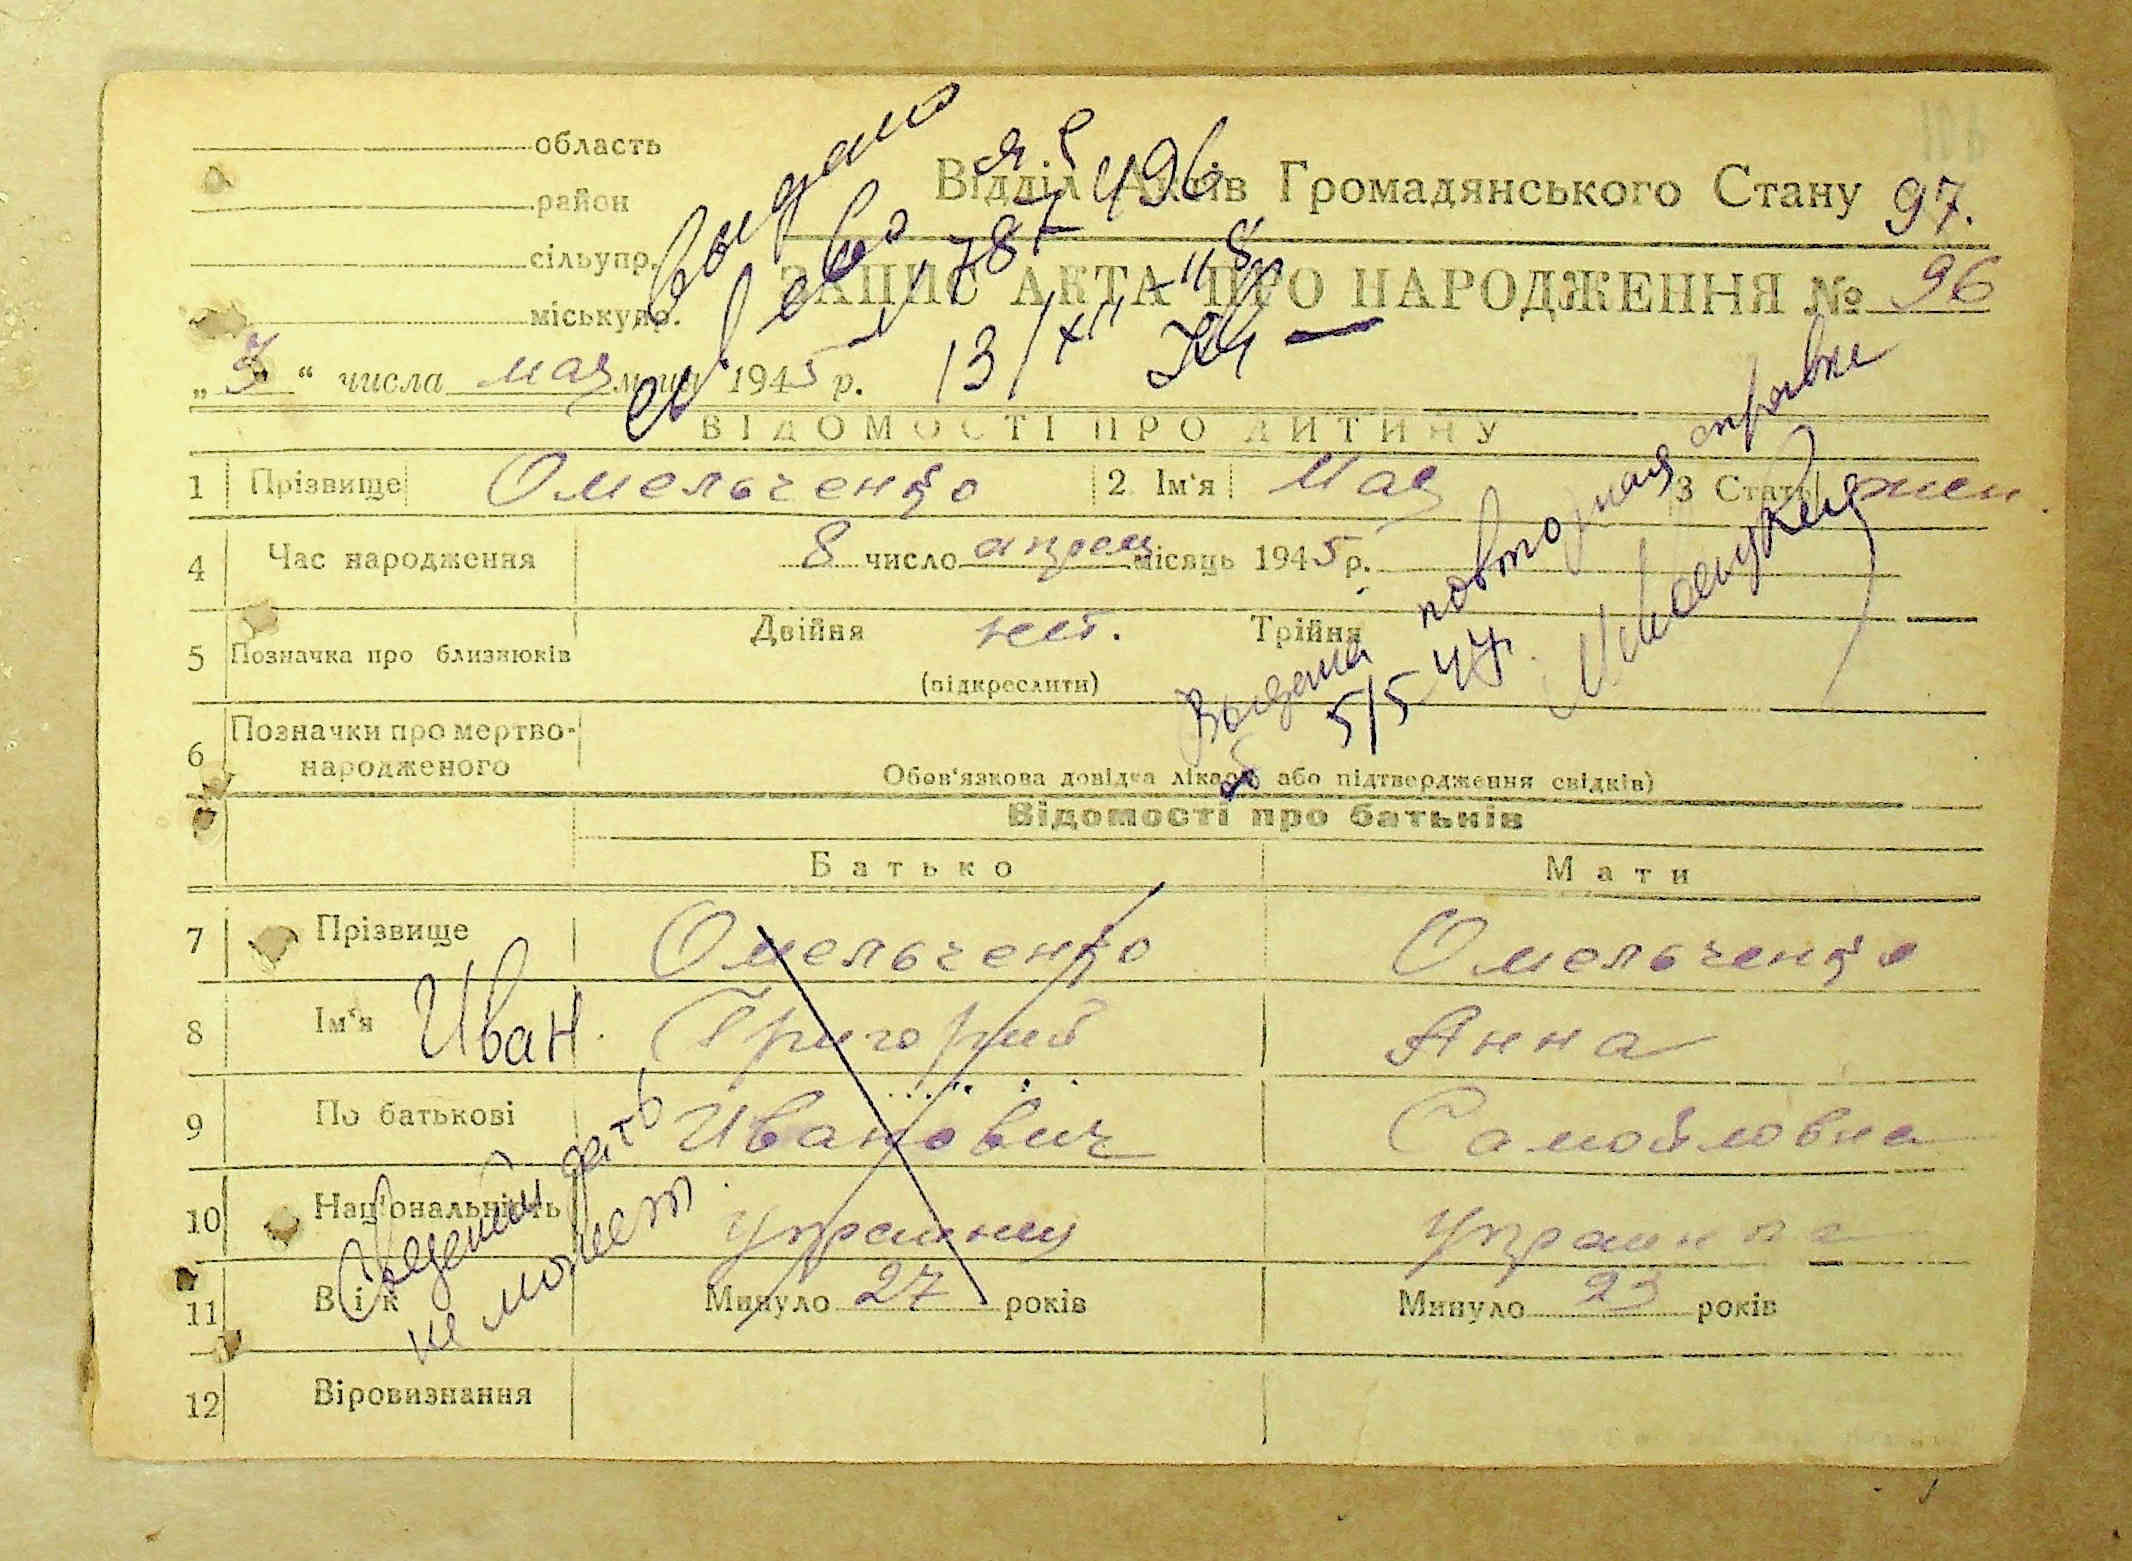 область
район
сільупр.
міськупр.
Відділ Актів Громадянського Стану 97.
ЗАПИС АКТА ПРО НАРОДЖЕННЯ № 96
„3“ числа мая м-ця 1945 р.
выдано
496
13/XII
ВІДОМОСТІ ПРО ДИТИНУ
1 Прізвище Омельченко 2 Ім'я Мая 3 Стать жен
4 Час народження 8 число апреля місяць 1945 р.
5 Позначка про близнюків Двійня нет. Трійня
(підкреслити)
Выдана повторная справка
5/5 47.
6 Позначки про мертво-
народженого
Обов'язкова довідка лікаря або підтвердження свідків)
Відомості про батьків
Батько Мати
7 Прізвище Омельченко Омельченко
8 Ім'я Иван. Григорий Анна
9 По батькові Иванович Самойловна
10 Національність украинец украинка
11 Вік Минуло 27 років Минуло 23 років
Сведений дать
не может
12 Віровизнання